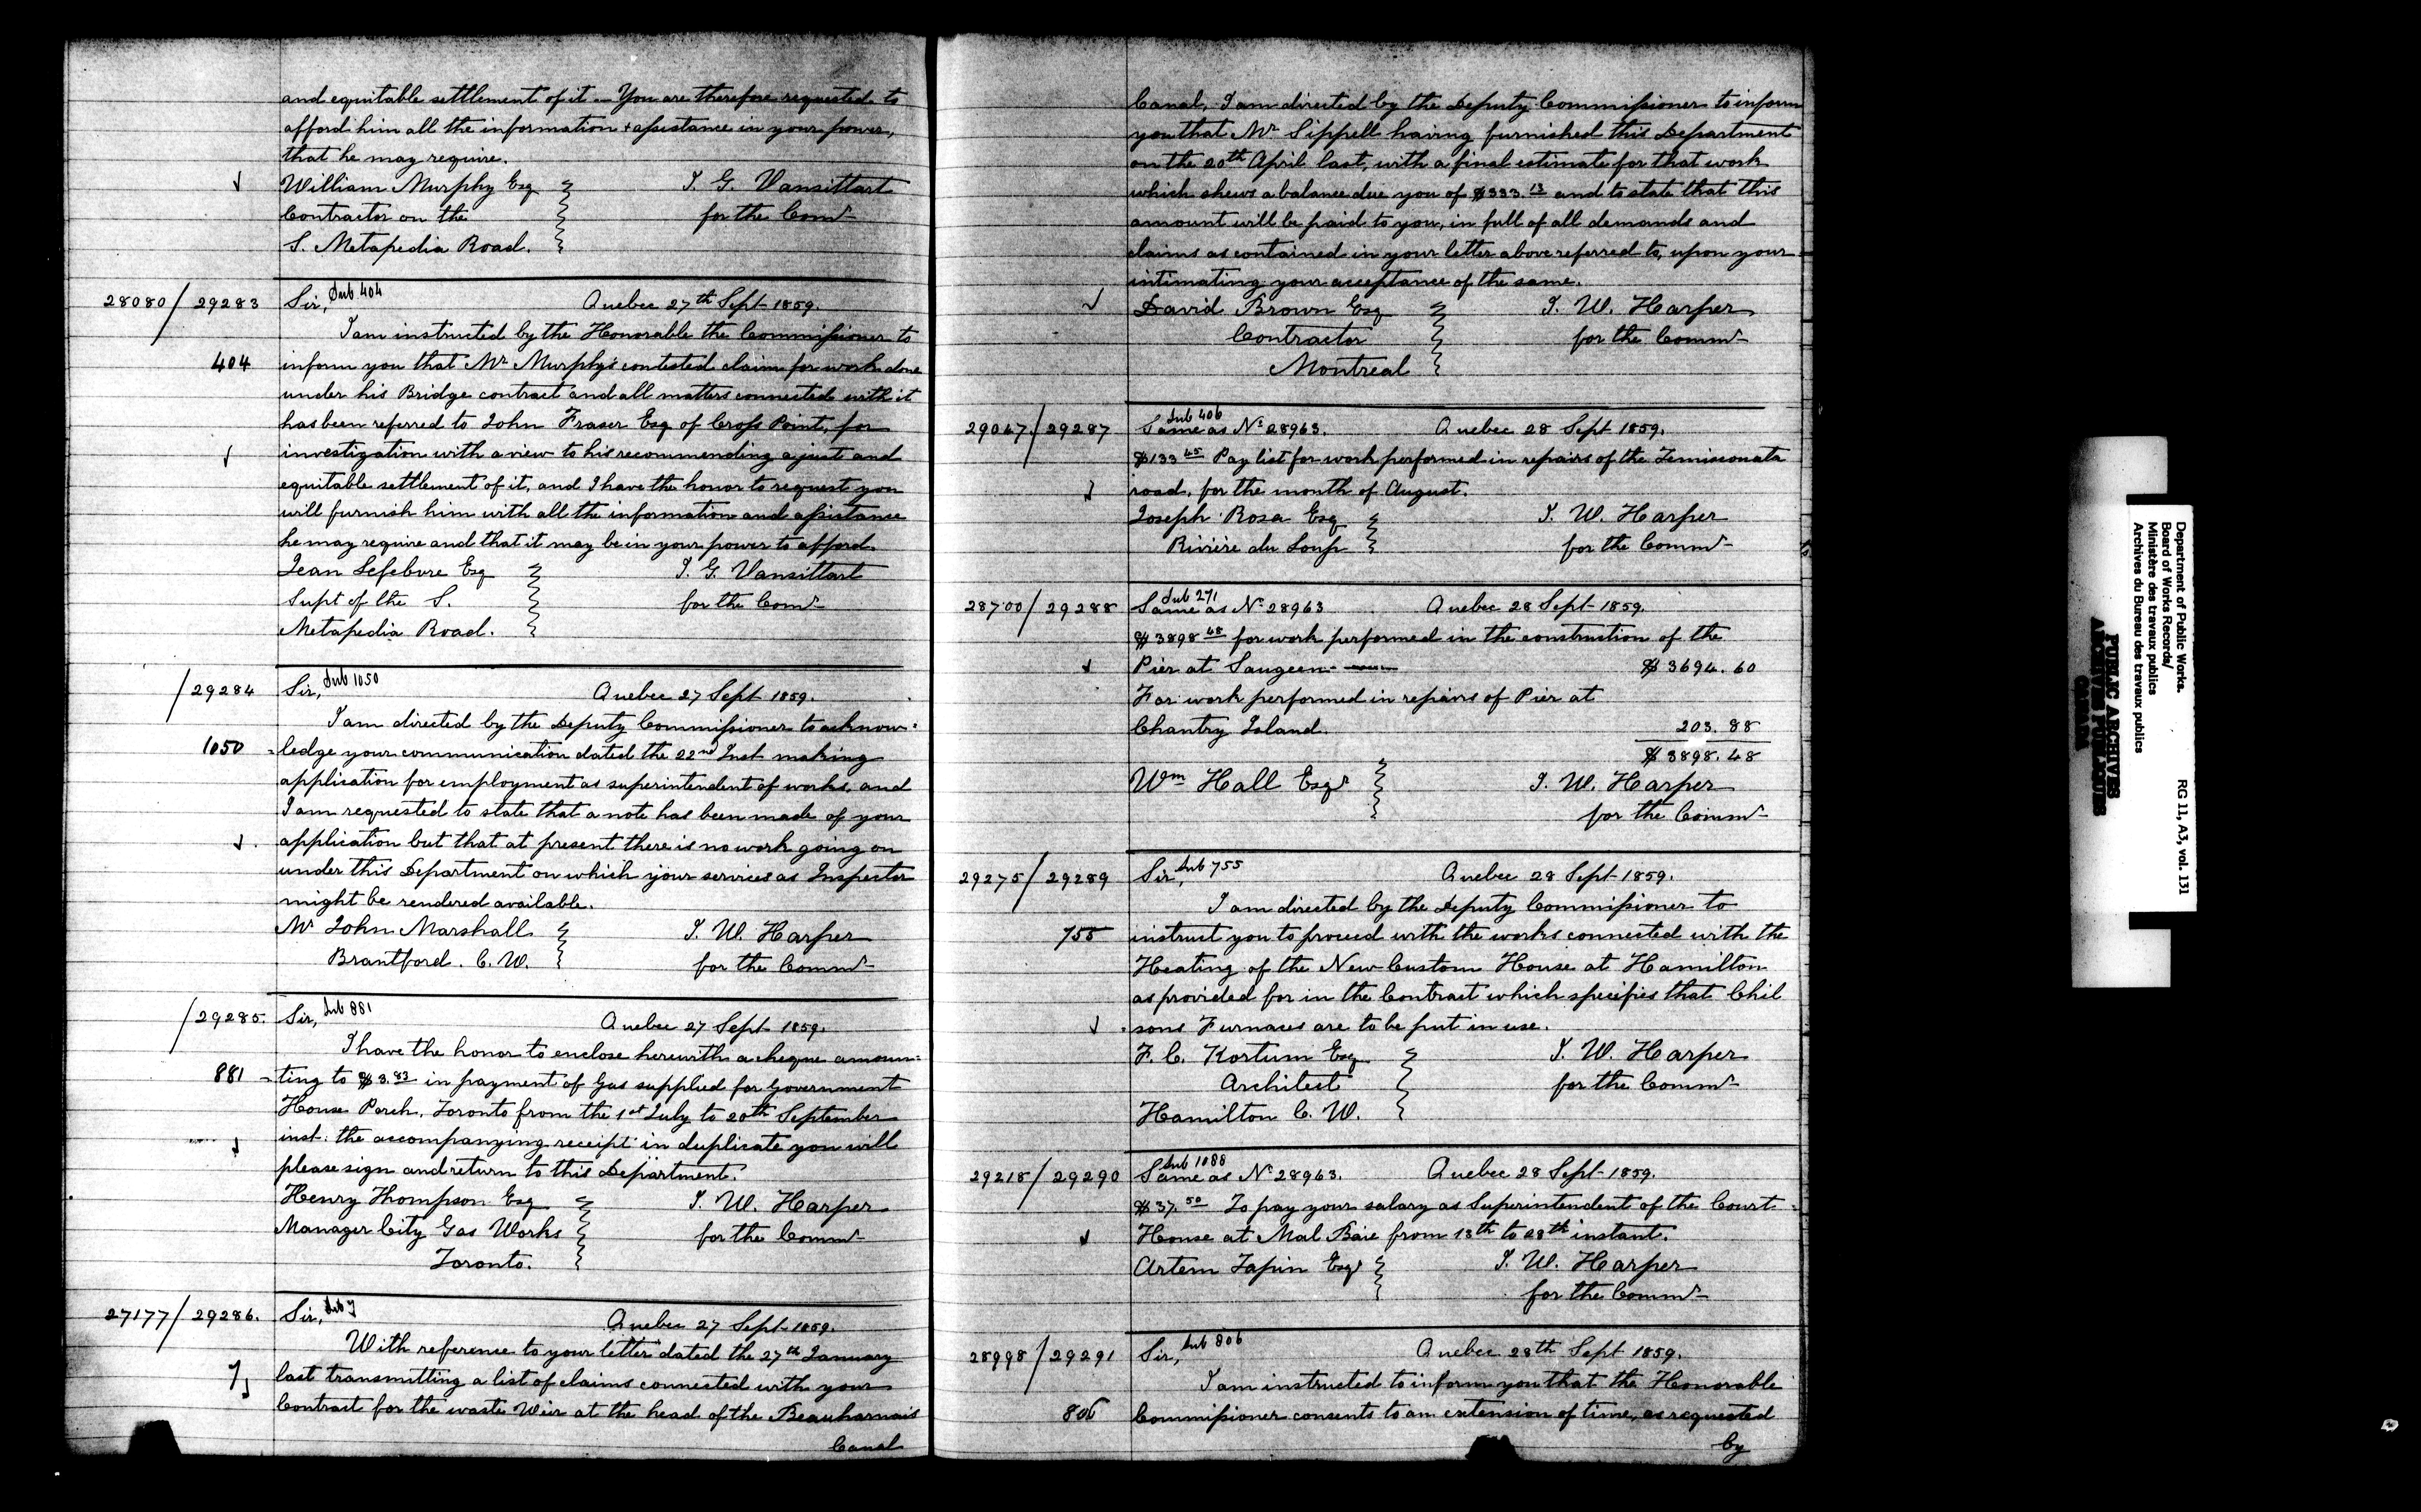 and equitable settlement of it. You are therefore requested to
afford him all the information & assistance in your power,
that he may require.
William Murphy Esq
Contractor on the
S. Metapedia Road.
J. G. Vansittart
for the Comr
28080/29283 Sir, Sub 404 Quebec 27th Sept 1859.
I am instructed by the Honorable the Commissioner to
404 inform you that Mr Murphy's contested claim for work done
under his Bridge contract and all matters connected with it
has been referred to John Fraser Esq of Cross Point, for
investigation with a view to his recommending a just and
equitable settlement of it, and I have the honor to request you
will furnish him with all the information and assistance
he may require and that it may be in your power to afford.
Jean Lefebvre Esq
Supt of the S.
Metapedia Road.
J. G. Vansittart
for the Comr
/29284 Sir, Sub 1050 Quebec 27 Sept 1859.
I am directed by the Deputy Commissioner to acknow=
1050 =ledge your communication dated the 22nd Inst making
application for employment as superintendent of works, and
I am requested to state that a note has been made of your
application but that at present there is no work going on
under this Department on which your services as Inspector
might be rendered available.
Mr John Marshall
Brantford. C. W.
J. W. Harper
for the Commr
/29285. Sir, Sub 881 Quebec 27 Sept 1859.
I have the honor to enclose herewith a cheque amoun=
881 =ting to $3.83 in payment of Gas supplied for Government
House Porch, Toronto from the 1st July to 20th September
inst. the accompanying receipt in duplicate you will
please sign and return to this Department.
Henry Thompson Esq
Manager City Gas Works
Toronto.
J. W. Harper
for the Commr
27177/29286. Sir, Sub 7 Quebec 27 Sept 1859.
With reference to your letter dated the 27th January
7 last transmitting a list of claims connected with your
Contract for the waste Weir at the head of the Beauharnois
Canal
Canal, I am directed by the Deputy Commissioner to inform
you that Mr Sippell having furnished this Department
on the 20th April last, with a final estimate for that work
which shews a balance due you of $333.13 and to state that this
amount will be paid to you, in full of all demands and
claims as contained in your letter above referred to, upon your
intimating your acceptance of the same.
David Brown Esq
Contractor
Montreal
J. W. Harper
for the Commr
29047/29287 Sub 406
Same as No 28963. Quebec 28 Sept 1859.
$133 45 Pay list for work performed in repairs of the Temisconata
road, for the month of August.
Joseph Rosa Esq
Rivière du Loup
J. W. Harper
for the Commr
28700/29288 Sub 271
Same as No 28963 Quebec 28 Sept 1859.
$3898 48 for work performed in the construction of the
Pier at Saugeen $3694.60
For work performed in repairs of Pier at
Chantry Island. 203.88
$3898.48
Wm Hall Esqr
J. W. Harper
for the Commr
29275/29289 Sir, Sub 755 Quebec 28 Sept 1859.
I am directed by the Deputy Commissioner to
755 instruct you to proceed with the works connected with the
Heating of the New Custom House at Hamilton
as provided for in the Contract which specifies that Chil
=sons Furnaces are to be put in use.
F. C. Kortum Esq
Architect
Hamilton C. W.
J. W. Harper
for the Commr
29218/29290 Sub 1088
Same as No 28963. Quebec 28 Sept 1859.
$37.50 To pay your salary as Superintendent of the Court=
House at Mal Baie from 13th to 28th instant.
Artem Tapin Esqr
J. W. Harper
for the Commr
28998/29291 Sir, Sub 806 Quebec 28th Sept 1859.
I am instructed to inform you that the Honorable
806 Commissioner consents to an extension of time, as requested
by
Department of Public Works.
Board of Works Records/
Ministère des travaux publics
Archives du Bureau des travaux publics
RG 11, A3, vol. 131
PUBLIC ARCHIVES
ARCHIVES PUBLIQUES
CANADA